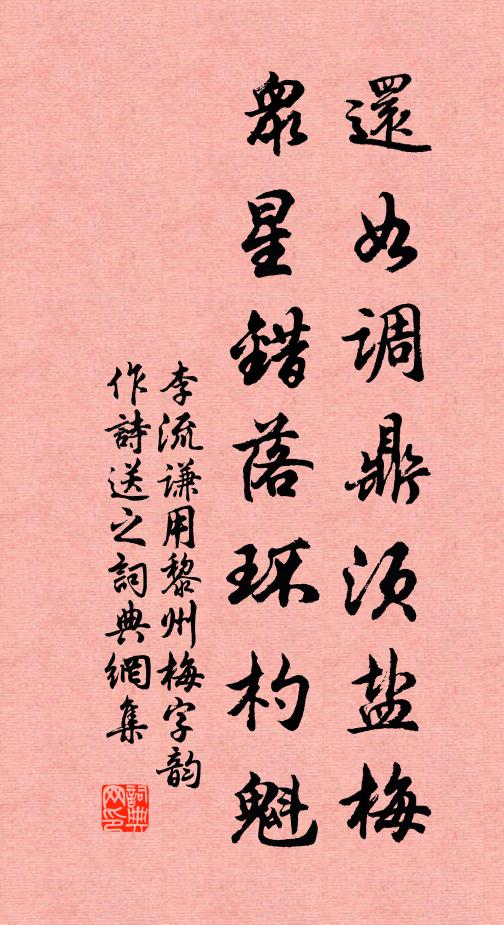 還如調鼎須盐梅
眾星錯落环杓魁
李流謙用黎州梅字韵
作詩送之詞典網集
詞典网印